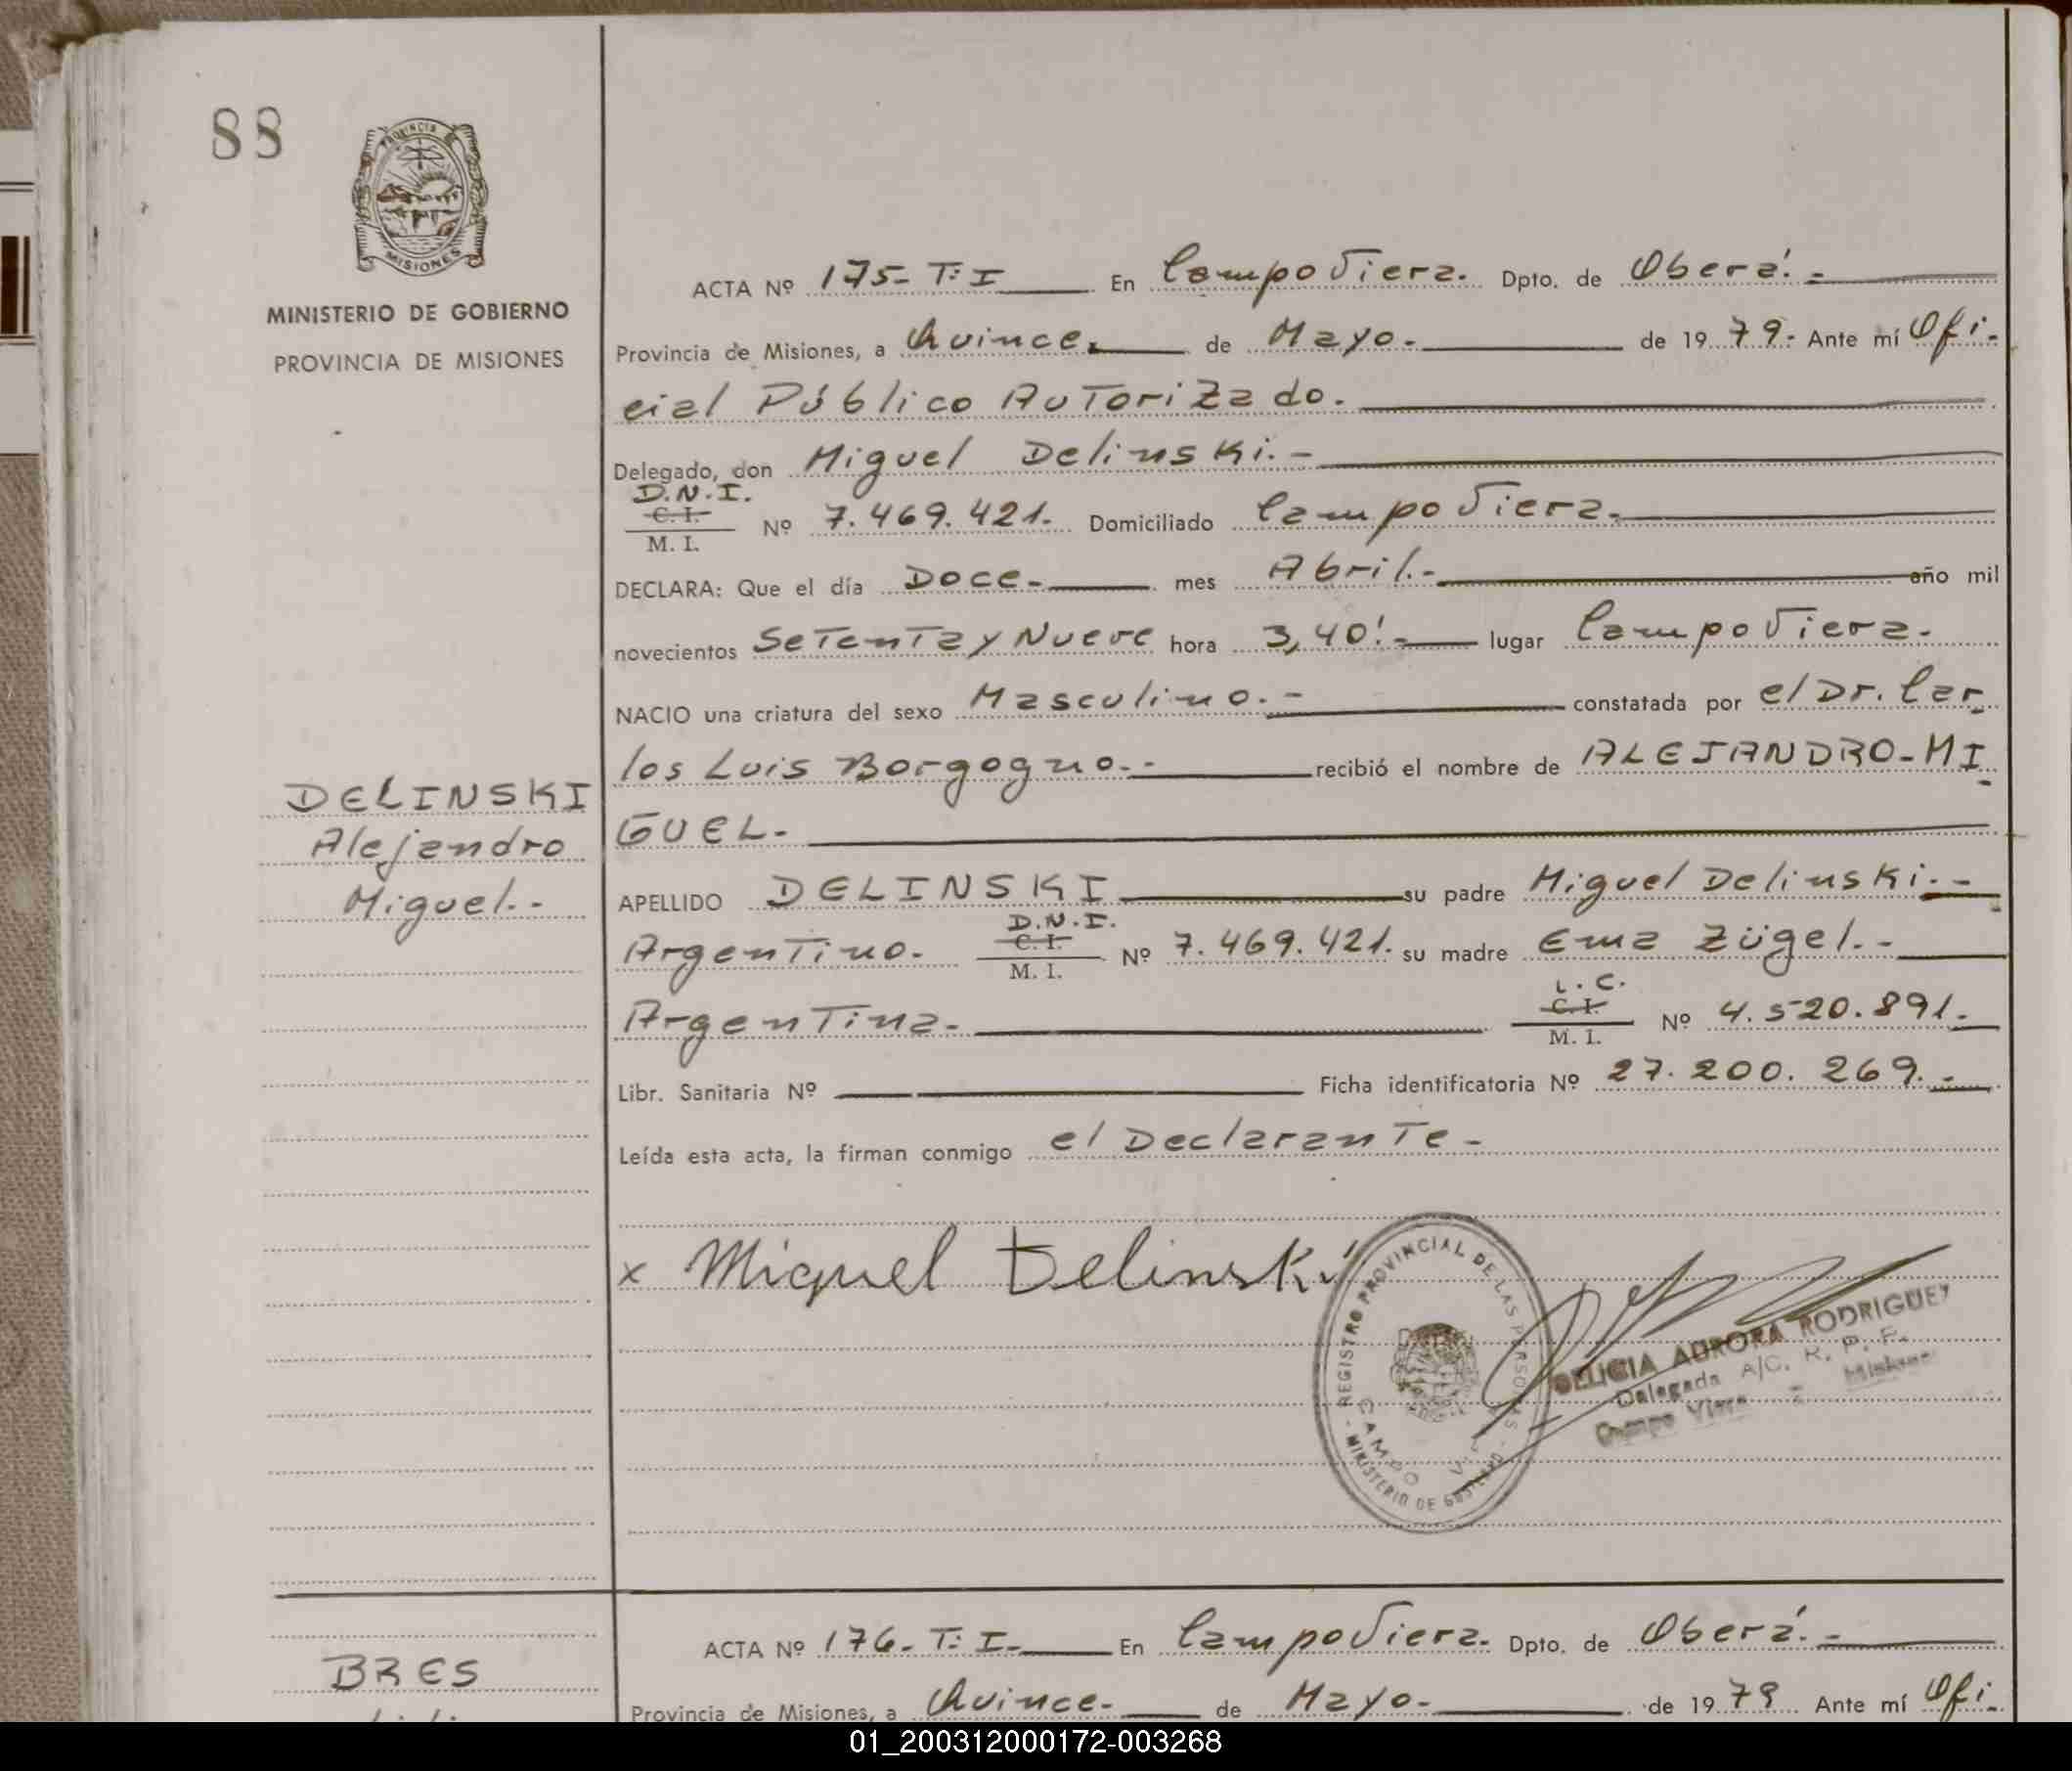 88
PROVINCIA DE
MISIONES
MINISTERIO DE GOBIERNO
PROVINCIA DE MISIONES
ACTA Nº 175- T: I En Campo Viera. Dpto. de Oberá.-
Provincia de Misiones, a Quince. de Mayo.- de 1979.- Ante mí Ofi-
cial Público Autorizado.
Delegado, don Miguel Delinski.-
D.N.I.
C. I.
M. I. Nº 7.469.421. Domiciliado Campo Viera.
DECLARA: Que el día Doce.- mes Abril.- año mil
novecientos Setenta y Nueve hora 3,40!- lugar Campo Viera.-
NACIO una criatura del sexo Masculino.- constatada por el Dr. Car-
los Luis Borgogno.- recibió el nombre de ALEJANDRO-MI-
GUEL.-
DELINSKI
Alejandro
Miguel.-
APELLIDO DELINSKI su padre Miguel Delinski.-
Argentino.- D.N.I.
C. I.
M. I. Nº 7.469.421. su madre Ema Zügel.-
Argentina.- L. C.
C. I.
M. I. Nº 4.520.891.-
Libr. Sanitaria Nº Ficha identificatoria Nº 27.200.269.-
Leída esta acta, la firman conmigo el Declarante-
x Miguel Delinski
REGISTRO PROVINCIAL DE LAS PERSONAS - MINISTERIO DE GOBIERNO -
CAMPO
DELICIA AURORA RODRIGUEZ
Delegada A/C. R. P. P.
Campo Viera - Misiones
ACTA Nº 176.- T: I.- En Campo Viera.- Dpto. de Oberá.-
BRES
Provincia de Misiones, a Quince.- de Mayo.- de 1979 Ante mí Ofi-
01_200312000172-003268